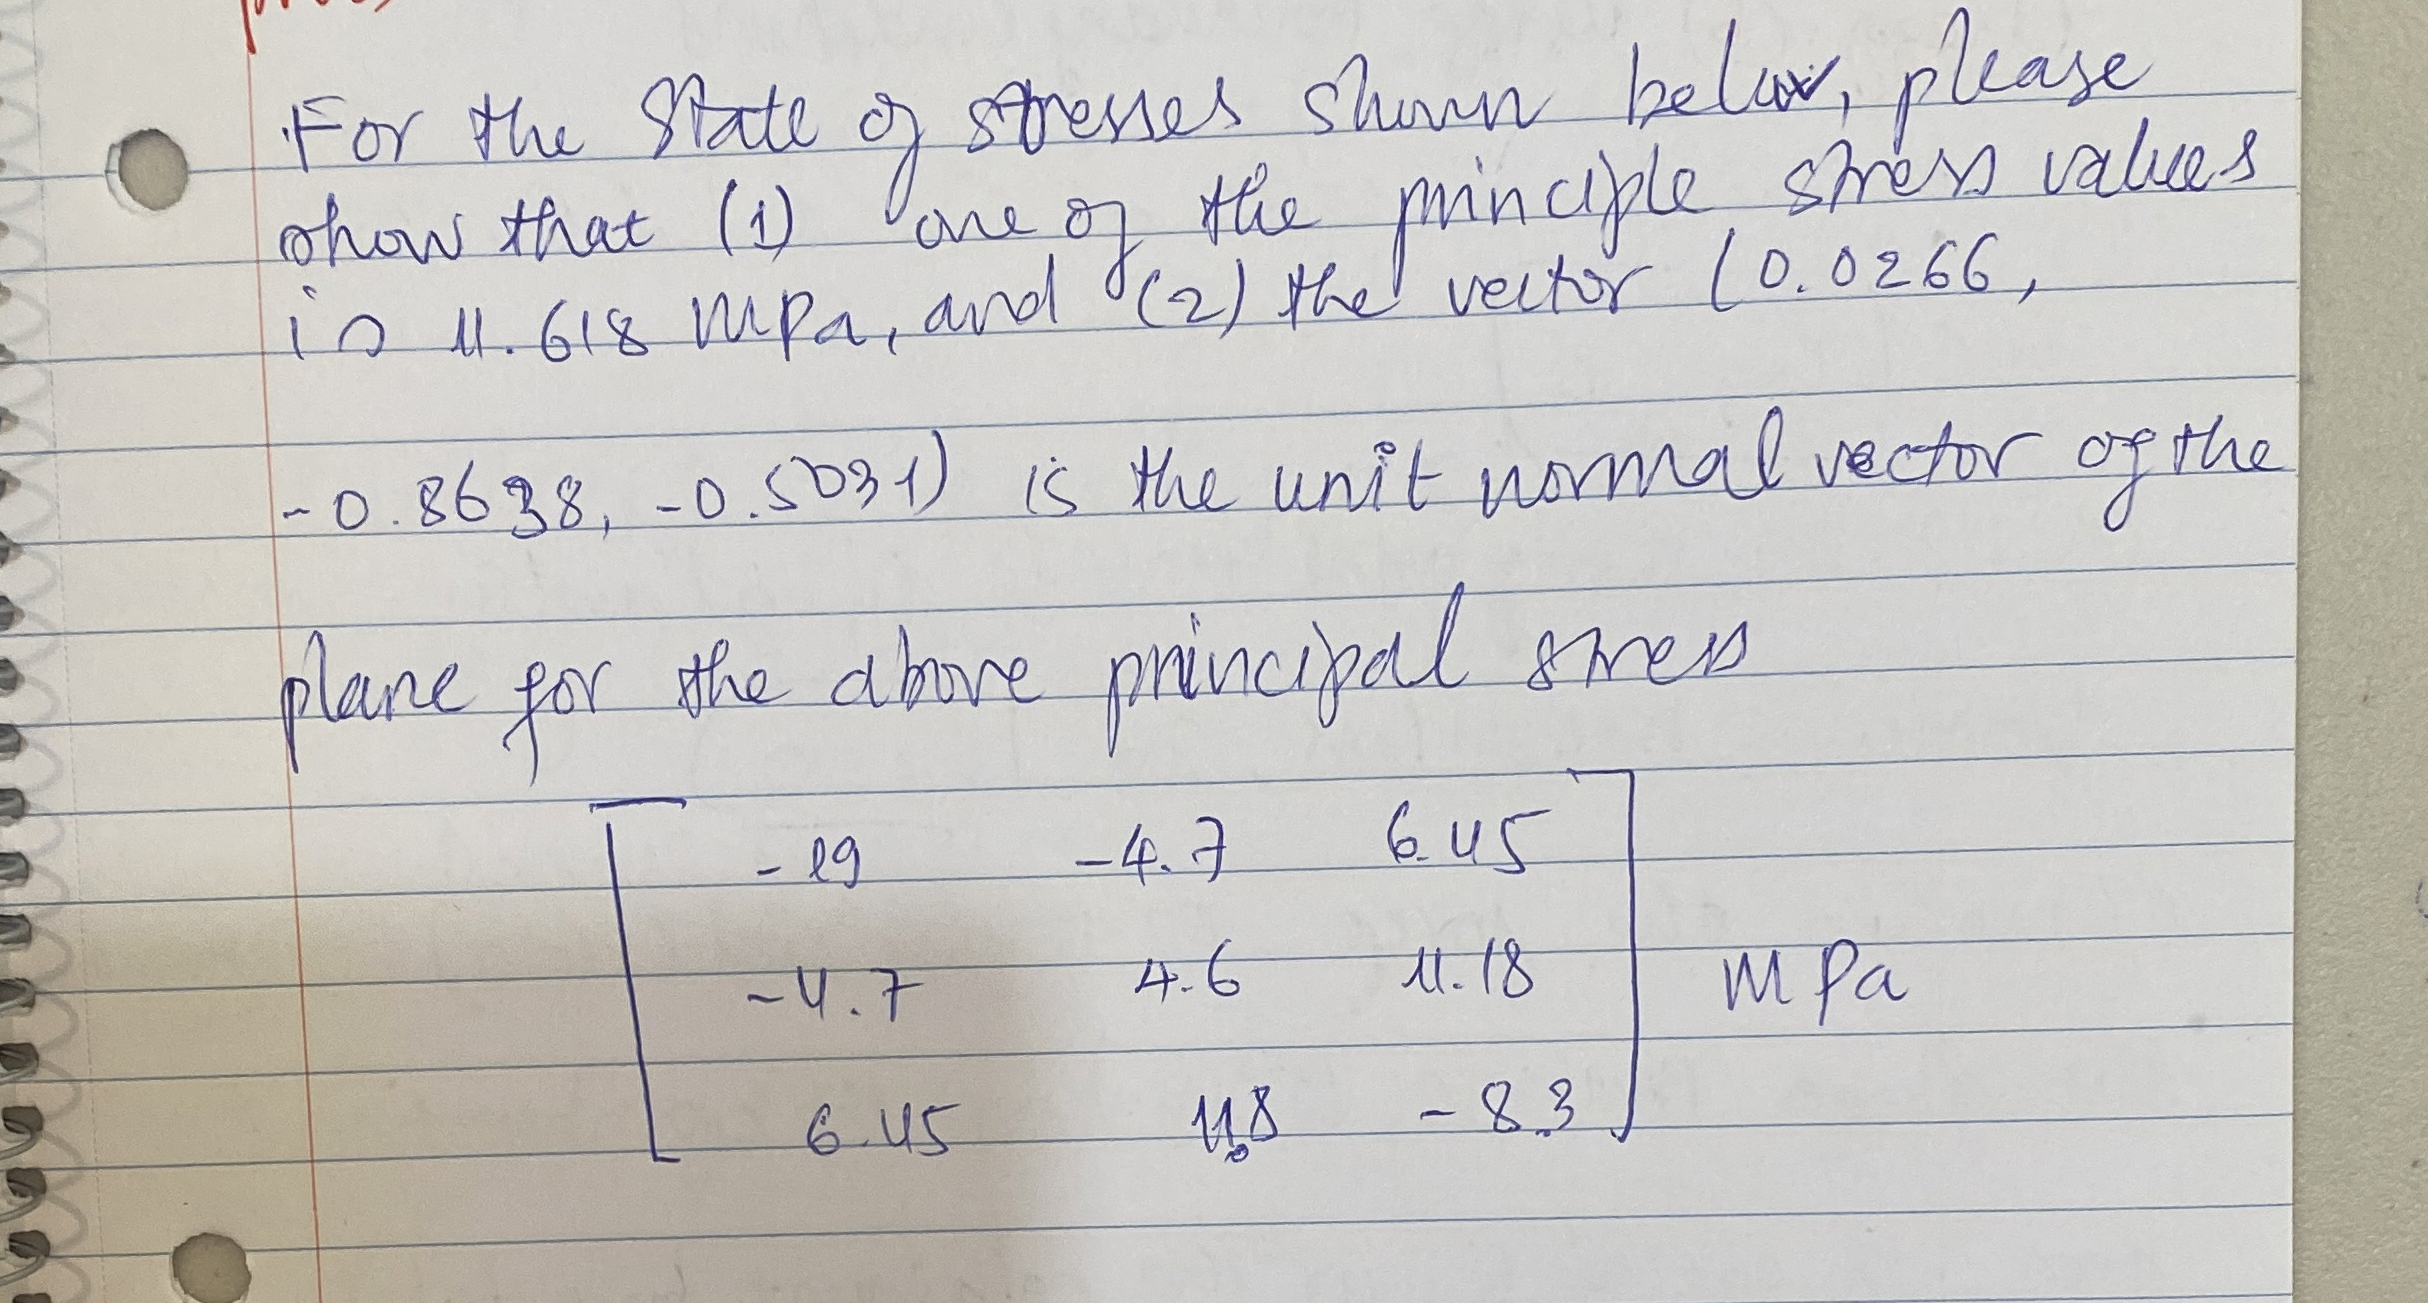 For the State of stresses shown below, please
show that (1) one of the principle stress values
is 11.618 MPa, and (2) the vector (0.0266,
-0.8638, -0.5031) is the unit normal vector of the
plane for the above principal stress
-19 -4.7 6.45
-4.7 4.6 11.18 MPa
6.45 11.8 -8.3